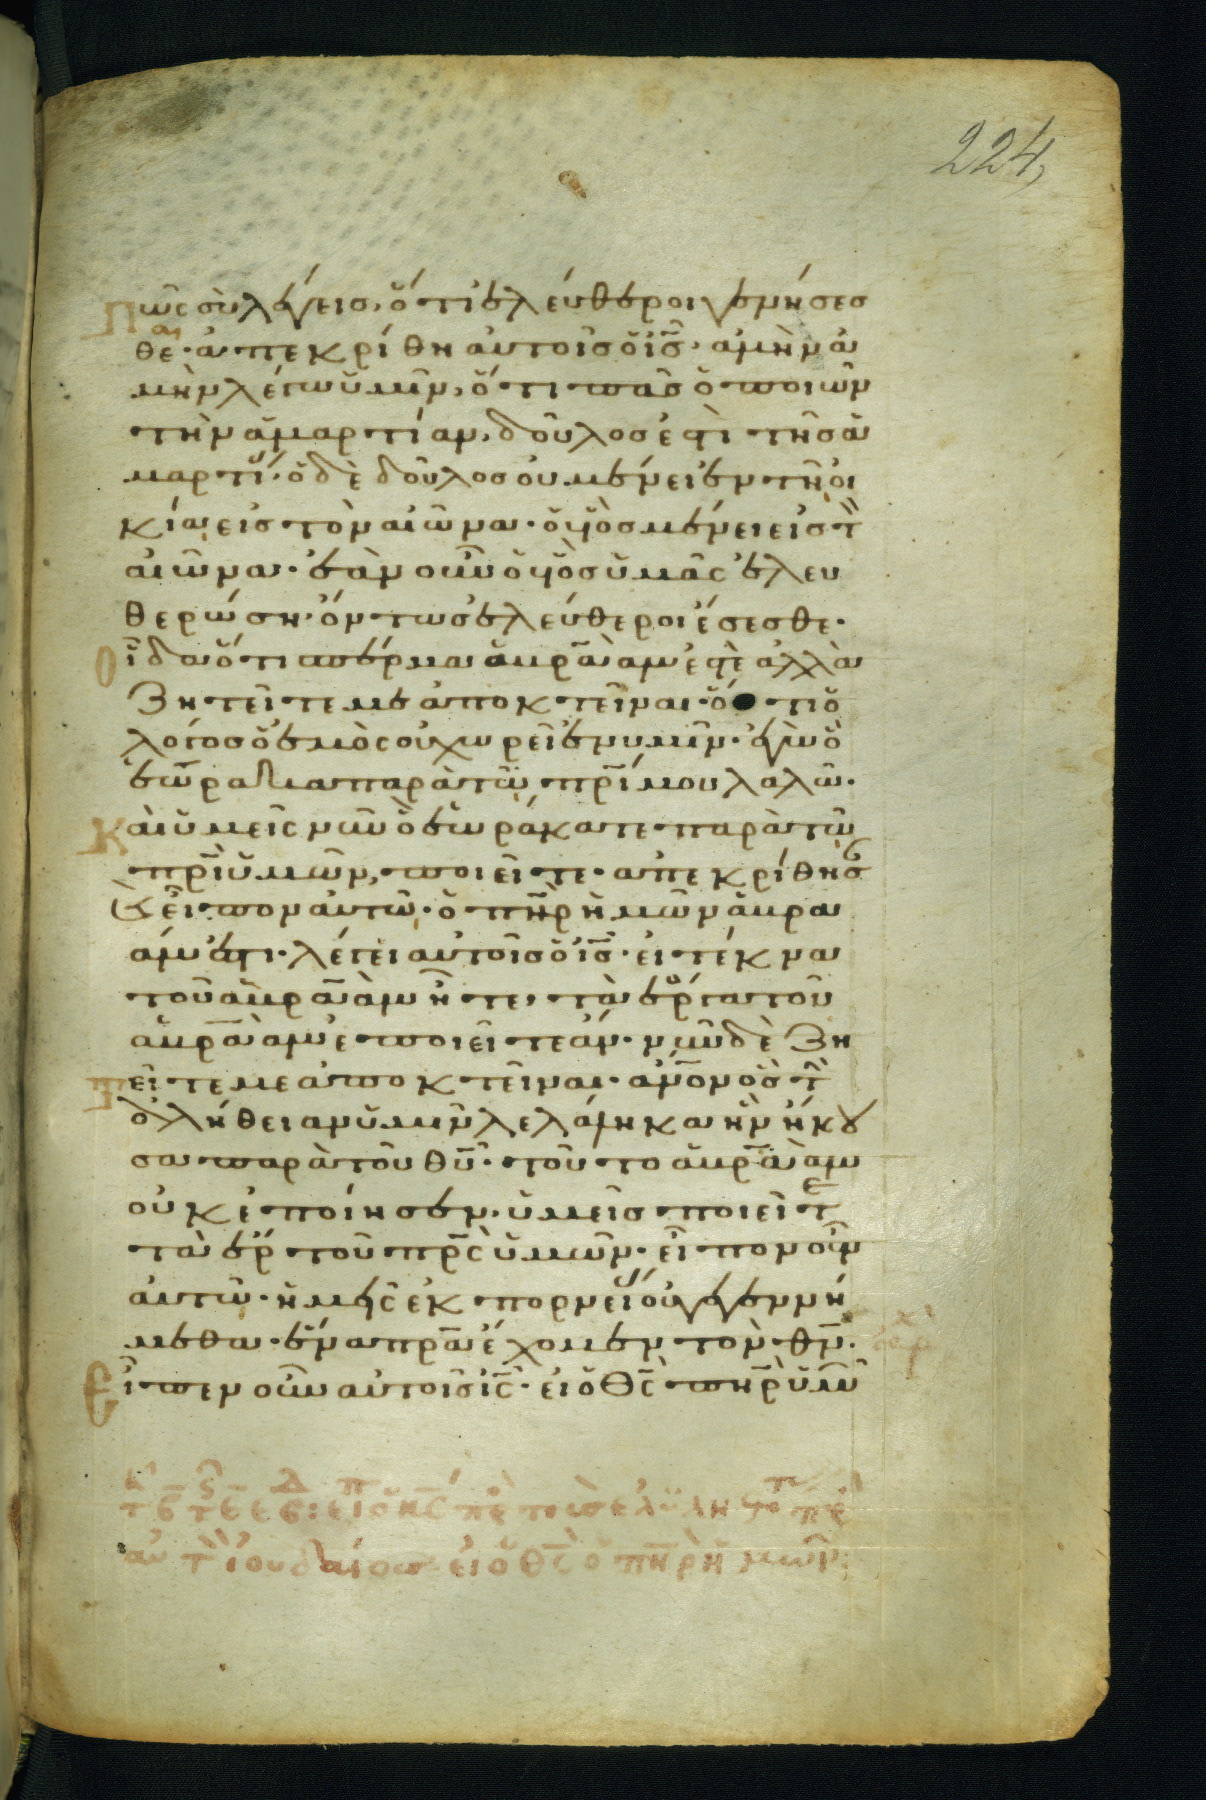 224
Πῶς σὺ λέγεις, ὅτι ἐλεύθεροι γενήσεσ
θε· ἀπεκρίθη αὐτοῖς ὁ ἰς̅· ἀμὴν ἀ
μὴν λέγω ὑμῖν, ὅτι πᾶς ὁ ποιῶν
τὴν ἁμαρτίαν, δοῦλος ἐστὶ τῆς ἁ
μαρτί· ὁ δὲ δοῦλος οὐ μένει ἐν τῆ οἰ
κία εἰς τὸν αἰῶνα· ὁ υἱὸς μένει εἰς τὸ
αἰῶνα· ἐὰν οὖν ὁ υἱὸς ὑμᾶς ἐλευ
θερώση· ὄντως ἐλεύθεροι ἔσεσθε·
Οἶδα ὅτι σπέρμα ἀβραάμ ἐστὲ ἀλλὰ
ζητεῖτε με ἀποκτεῖναι· ὅτι ὁ
λόγος ὁ ἐμὸς οὐ χωρεῖ ἐν υμῖν· ἐγὼ ὃ
ἑώρακα παρὰ τῶ πρ̅ί μου λαλῶ·
Καὶ ὑμεῖς οὖν ὃ ἑωράκατε παρὰ τῶ
πρ̅ὶ ὑμῶν, ποιεῖτε· ἀπεκρίθησ
(καὶ) εἶπον αὐτῶ· ὁ πηρ̅ ἡμῶν ἀβρα
άμ ἐστι· λέγει αὐτοῖς ὁ ἰς̅· εἰ τέκνα
τοῦ ἀβραὰμ ἦτε, τὰ ἔργα τοῦ
ἀβραὰμ ἐποιεῖτε ἄν· νῦν δὲ ζη
τεῖτε με ἀποκτεῖναι· ἄνο̅ν ὃς τὴ
ἀλήθειαν ὑμῖν λελάληκα ἣν ἤκου
σα παρὰ τοῦ θυ̅· τοῦτο ἀβραὰμ
οὐκ ἐποίησεν· ὑμεῖς ποιεῖτε
τὰ ἔρ τοῦ πρς̅ ὑμῶν· εἶπον οὖν
αὐτῶ· ἡμεῖς ἐκ πορνεί οὐ γεγεννή
μεθα· ἕνα πρα̅ ἔχομεν τὸν θν̅·
Εἶπεν οὖν αὐτοῖς ἰς̅· εἰ ὁ θς̅ πηρ̅ ὑμῶ